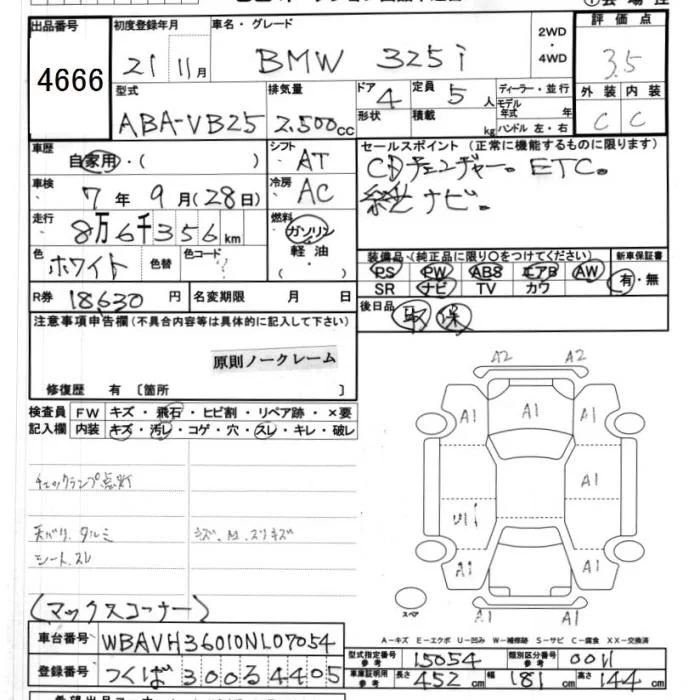 出品番号
4666
初度登録年月
21 11月
車名・グレード
BMW 325i
2WD
・
4WD
評価点
3.5
外装 内装
C C
型式
ABA-VB25
排気量
2.500cc
ドア 4
形状
定員 5人
積載 kg
ディーラー・並行
モデル年式 年
ハンドル 左・右
車歴
自家用・( )
シフト
AT
セールスポイント(正常に機能するものに限ります)
CDチェンジャー。ETC。
純正ナビ。
車検
7年 9月(28日)
冷房
AC
走行
8万6千356km
燃料
ガソリン
・
軽油
・
( )
色
ホワイト
色替
色コード
装備品(純正品に限り〇をつけてください)
新車保証書
有・無
PS PW ABS エアB AW
SR ナビ TV カワ
R券 18,630円
名変期限 月 日
後日品
取 保
注意事項申告欄(不具合内容等は具体的に記入して下さい)
原則ノークレーム
修復歴 有〔箇所 〕
検査員
記入欄
FW キズ・飛石・ヒビ割・リペア跡・×要
内装 キズ・汚レ・コゲ・穴・スレ・キレ・破レ
チェックランプ点灯
天バリ、タルミ
シート、スレ
A2 A2
A1 A1 A1
A1
A1
A1 A1
A2 A1
スペア
(マックスコーナー)
A-キズ E-エクボ U-凹み W-補修跡 S-サビ C-腐食 XX-交換済
車台番号 WBAVH36010NL07054
登録番号 つくば 300 る 4405
型式指定番号 参考 15054
類別区分番号 参考 0011
車庫証明用 参考 長さ 452cm 幅 181cm 高さ 144cm